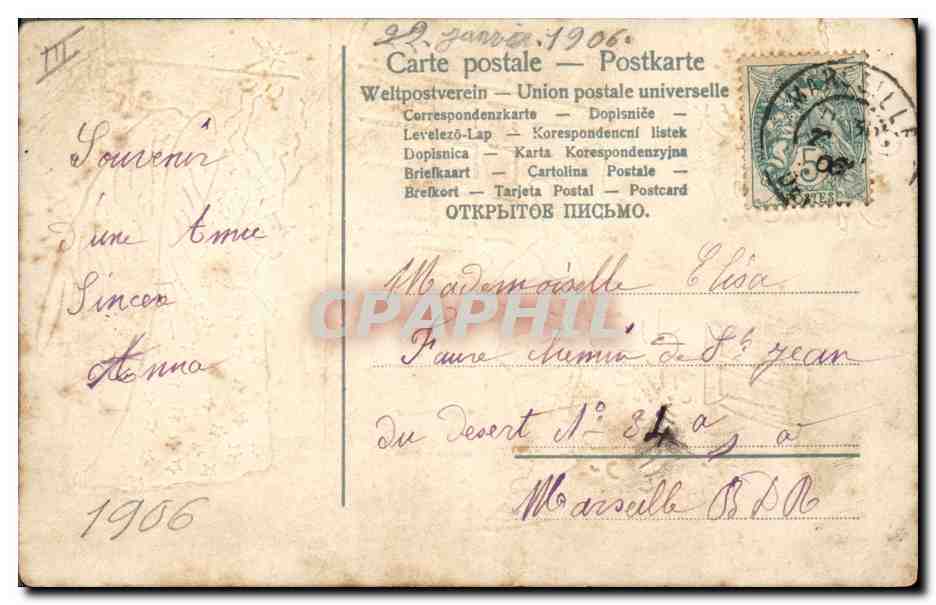 III
22 janvier 1906.
Carte postale — Postkarte
Weltpostverein — Union postale universelle
Correspondenzkarte — Dopisniče —
Levelező-Lap — Korespondencní listek
Dopisnica — Karta Korespondenzyjna
Briefkaart — Cartolina Postale —
Brefkort — Tarjeta Postal — Postcard
ОТКРЫТОЕ ПИСЬМО.
MARSEILLE
5
Souvenir
d'une Amie
Sincer
Anna
1906
Mademoiselle Elisa
Faure chemin de St Jean
du desert No 34 a
Marseille BDR
CPAPHIL